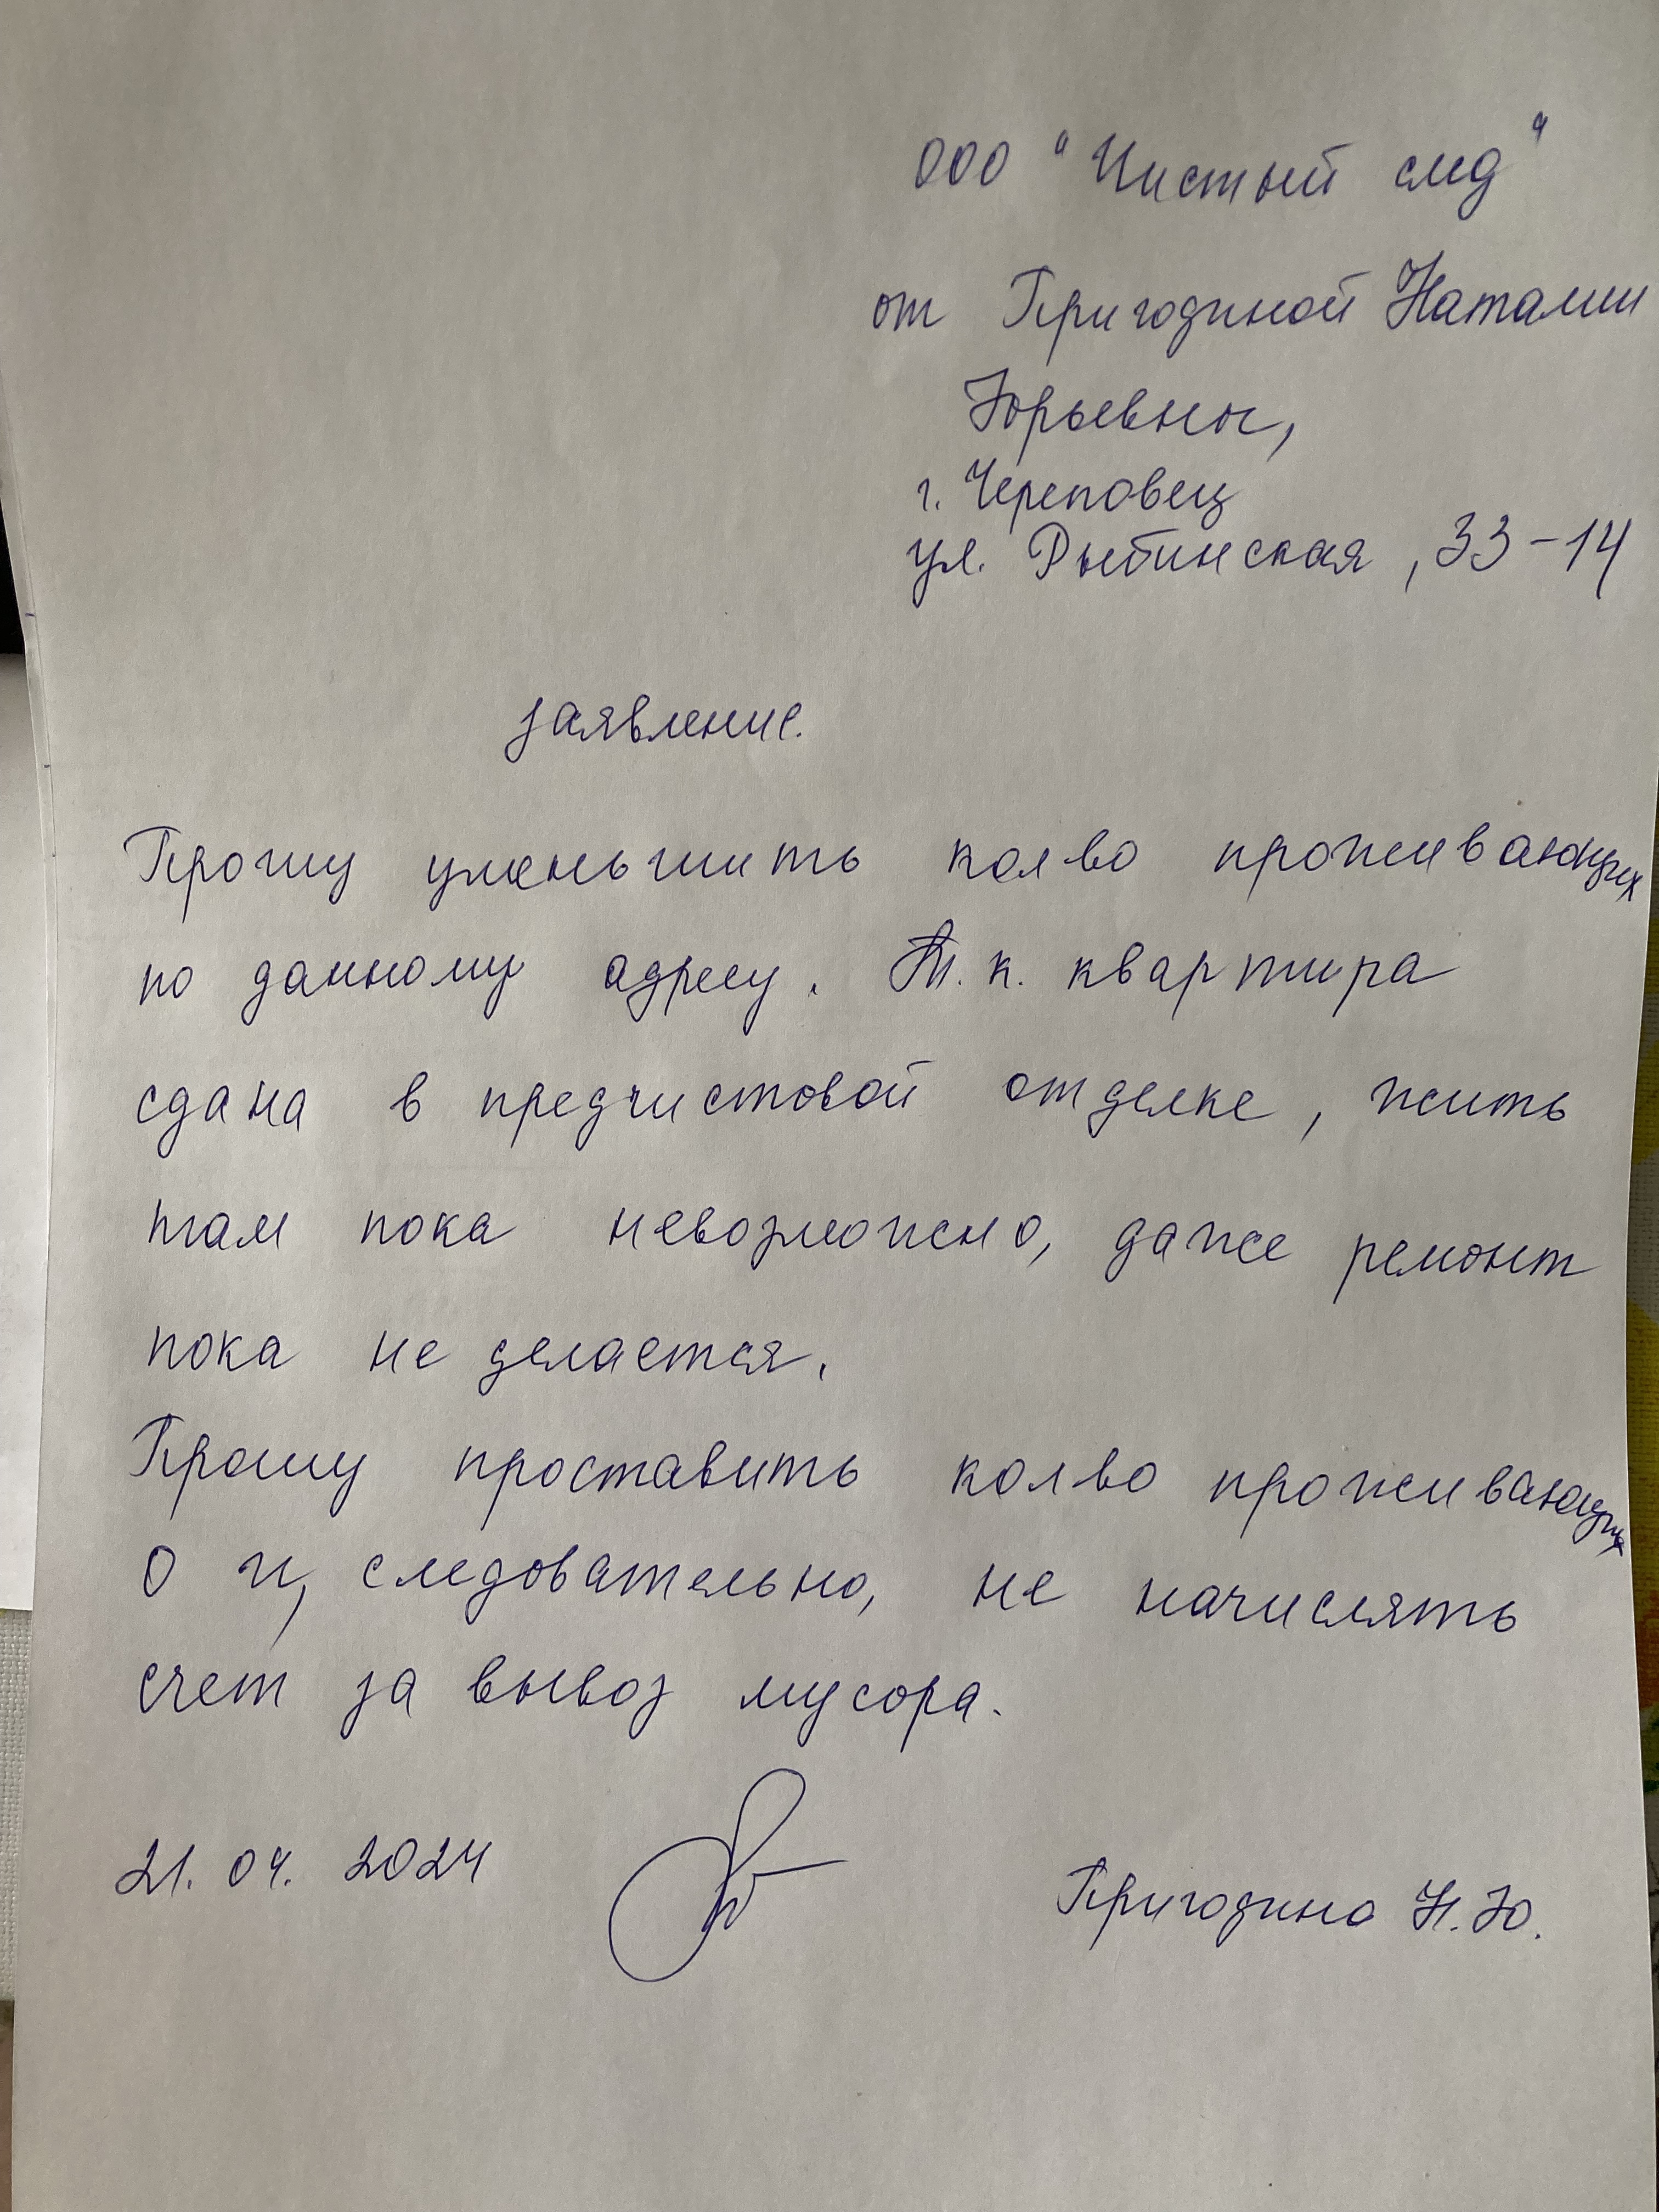 ООО "Чистый след"
от Пригодиной Наталии
Юрьевны,
г. Череповец
ул. Рыбинская, 33-14
заявление.
Прошу уменьшить кол во проживающих
по данному адресу. Т.к. квартира
сдана в предчистовой отделке, жить
там пока невозможно, даже ремонт
пока не делается.
Прошу проставить кол во проживающих
0 и, следовательно, не начислять
счет за вывоз мусора.
21.04.2024 Пригодина Н.Ю.